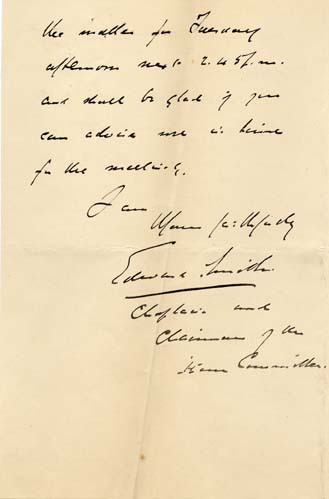 the matter for Tuesday
afternoon next 2.45 p.m.
and shall be glad if you
can advise me in time
for the meeting.
I am
Yours faithfully
Edward Smith
Chaplain and
Chairman of the
Committee.